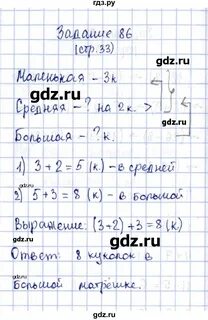 Задание 86
(стр. 33)
Маленькая - 3к
Средняя - ? на 2к. >
Большая - ? к.
1) 3 + 2 = 5 (к) - в средней
2) 5 + 3 = 8 (к) - в большой
Выражение: (3+2) + 3 = 8 (к)
Ответ: 8 куколок в
большой матрёшке.
gdz.ru
gdz.ru
gdz.ru
gdz.ru
gdz.ru
gdz.ru
gdz.ru